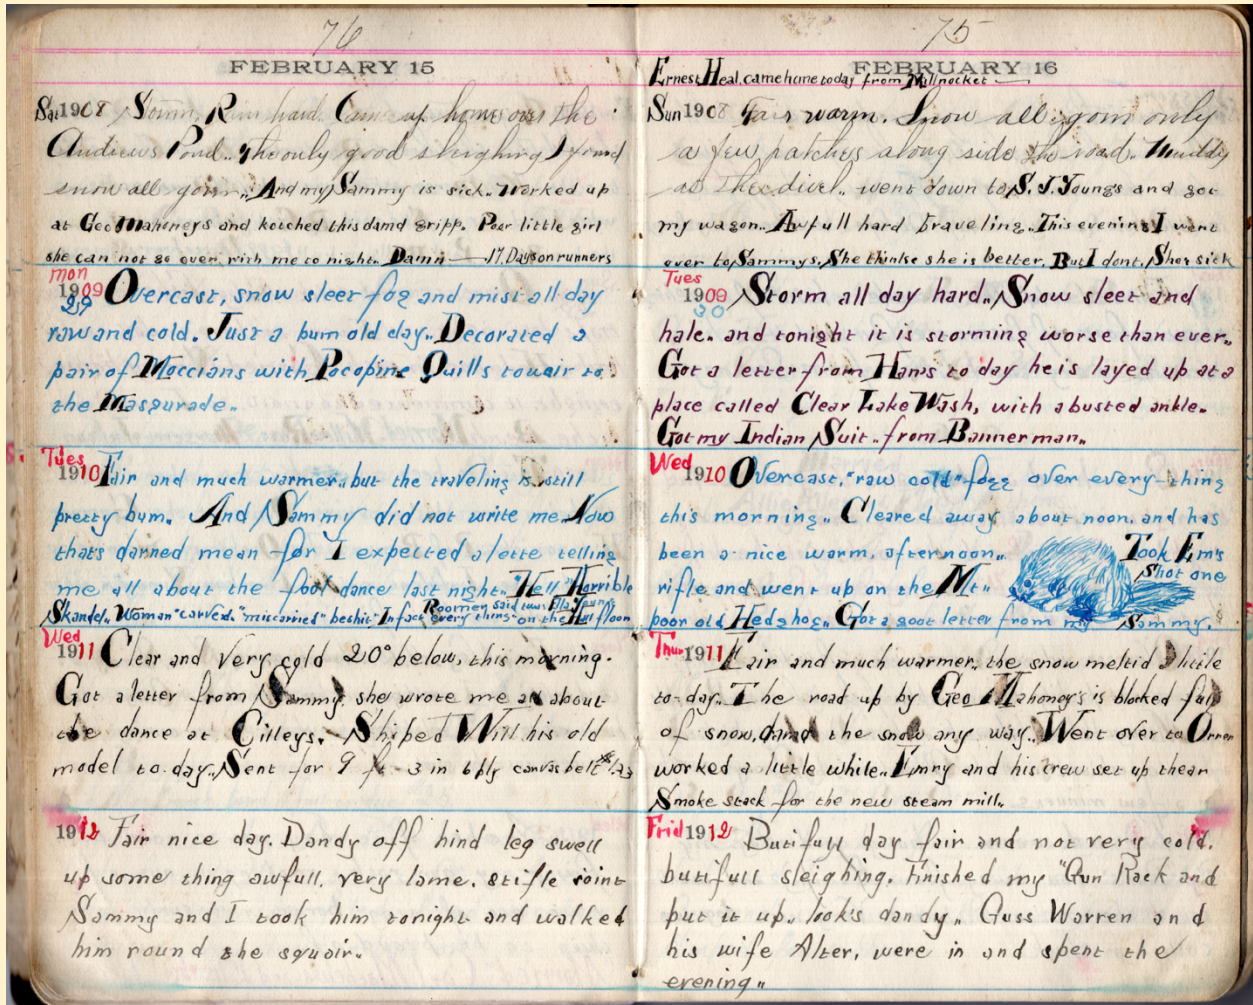 76
FEBRUARY 15
Sat 1908 Storm, Rain hard. Came up home over the
Andrews Pond.. the only good sleighing I found
snow all gorn.. And my Sammy is sick.. Worked up
at Geo Mahoneys and kotched this damd gripp. Poor little girl
she can not go over with me to night.. Damn — 17, Days on runners
Mon
1909 Overcast, snow sleet fog and mist all day
29
raw and cold. Just a bum old day.. Decorated a
pair of Moccians with Pocopine Quills to wair to
the Masqurade..
Tues
1910 Fair and much warmer.. but the traveling is still
pretty bum. And Sammy did not write me. Now
that's darned mean for I expected a lette telling
me all about the fool dance last night.. "Hell" Horrible
Skandel.. Woman "carved." "miscarried" beshit" In fact every thing" on the Hall floor
Roomey said twas Ella Young
Wed
1911 Clear and very cold 20° below, this morning.
Got a letter from Sammy, she wrote me all about
the dance at Cilleys. Shiped Will his old
model to-day.. Sent for 9 ft - 3 in 6 ply canvas belt
1912 Fair nice day. Dandy off hind leg swell
up some thing awfull. very lame. stifle joint
Sammy and I took him tonight and walked
him round the squair..
75
FEBRUARY 16
Ernest Heal. came home today from Millnocket —
Sun 1908 Fair warm. Snow all gorn only
a few patches along side the road.. Muddy
as the divel.. went down to S. J. Youngs and got
my wagon.. Awfull hard traveling.. This evening I went
over to Sammys. She thinks she is better. But I dont. Shes sick
Tues
1909 Storm all day hard.. Snow sleet and
30
hale. and tonight it is storming worse than ever..
Got a letter from Hams to day he is layed up at a
place called Clear Lake Wash, with a busted ankle.
Got my Indian Suit.. from Bannerman..
Wed
1910 Overcast, "raw cold" fogg over every-thing
this morning.. Cleared away about noon. and has
been a nice warm. afternoon.. Took Em's
rifle and went up on the Mt.. Shot one
poor old Hedghog.. Got a goot letter from my Sammy.
Thur 1911 Fair and much warmer.. the snow meltid a little
to-day.. The road up by Geo Mahoney's is blocked full
of snow, damd the snow any way.. Went over to Orner
worked a little while.. Emry and his crew set up thear
Smoke stack for the new steam mill..
Frid 1912 Butifull day fair and not very cold.
butifull sleighing. Finished my "Gun Rack and
put it up.. look's dandy.. Guss Warren and
his wife Alter, were in and spent the
evening..